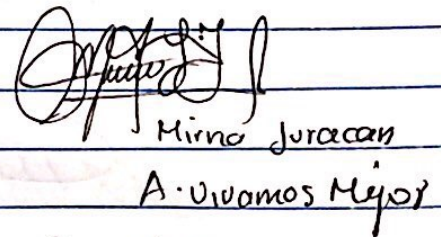 Mirna Juracan
A. Vivamos Mejor